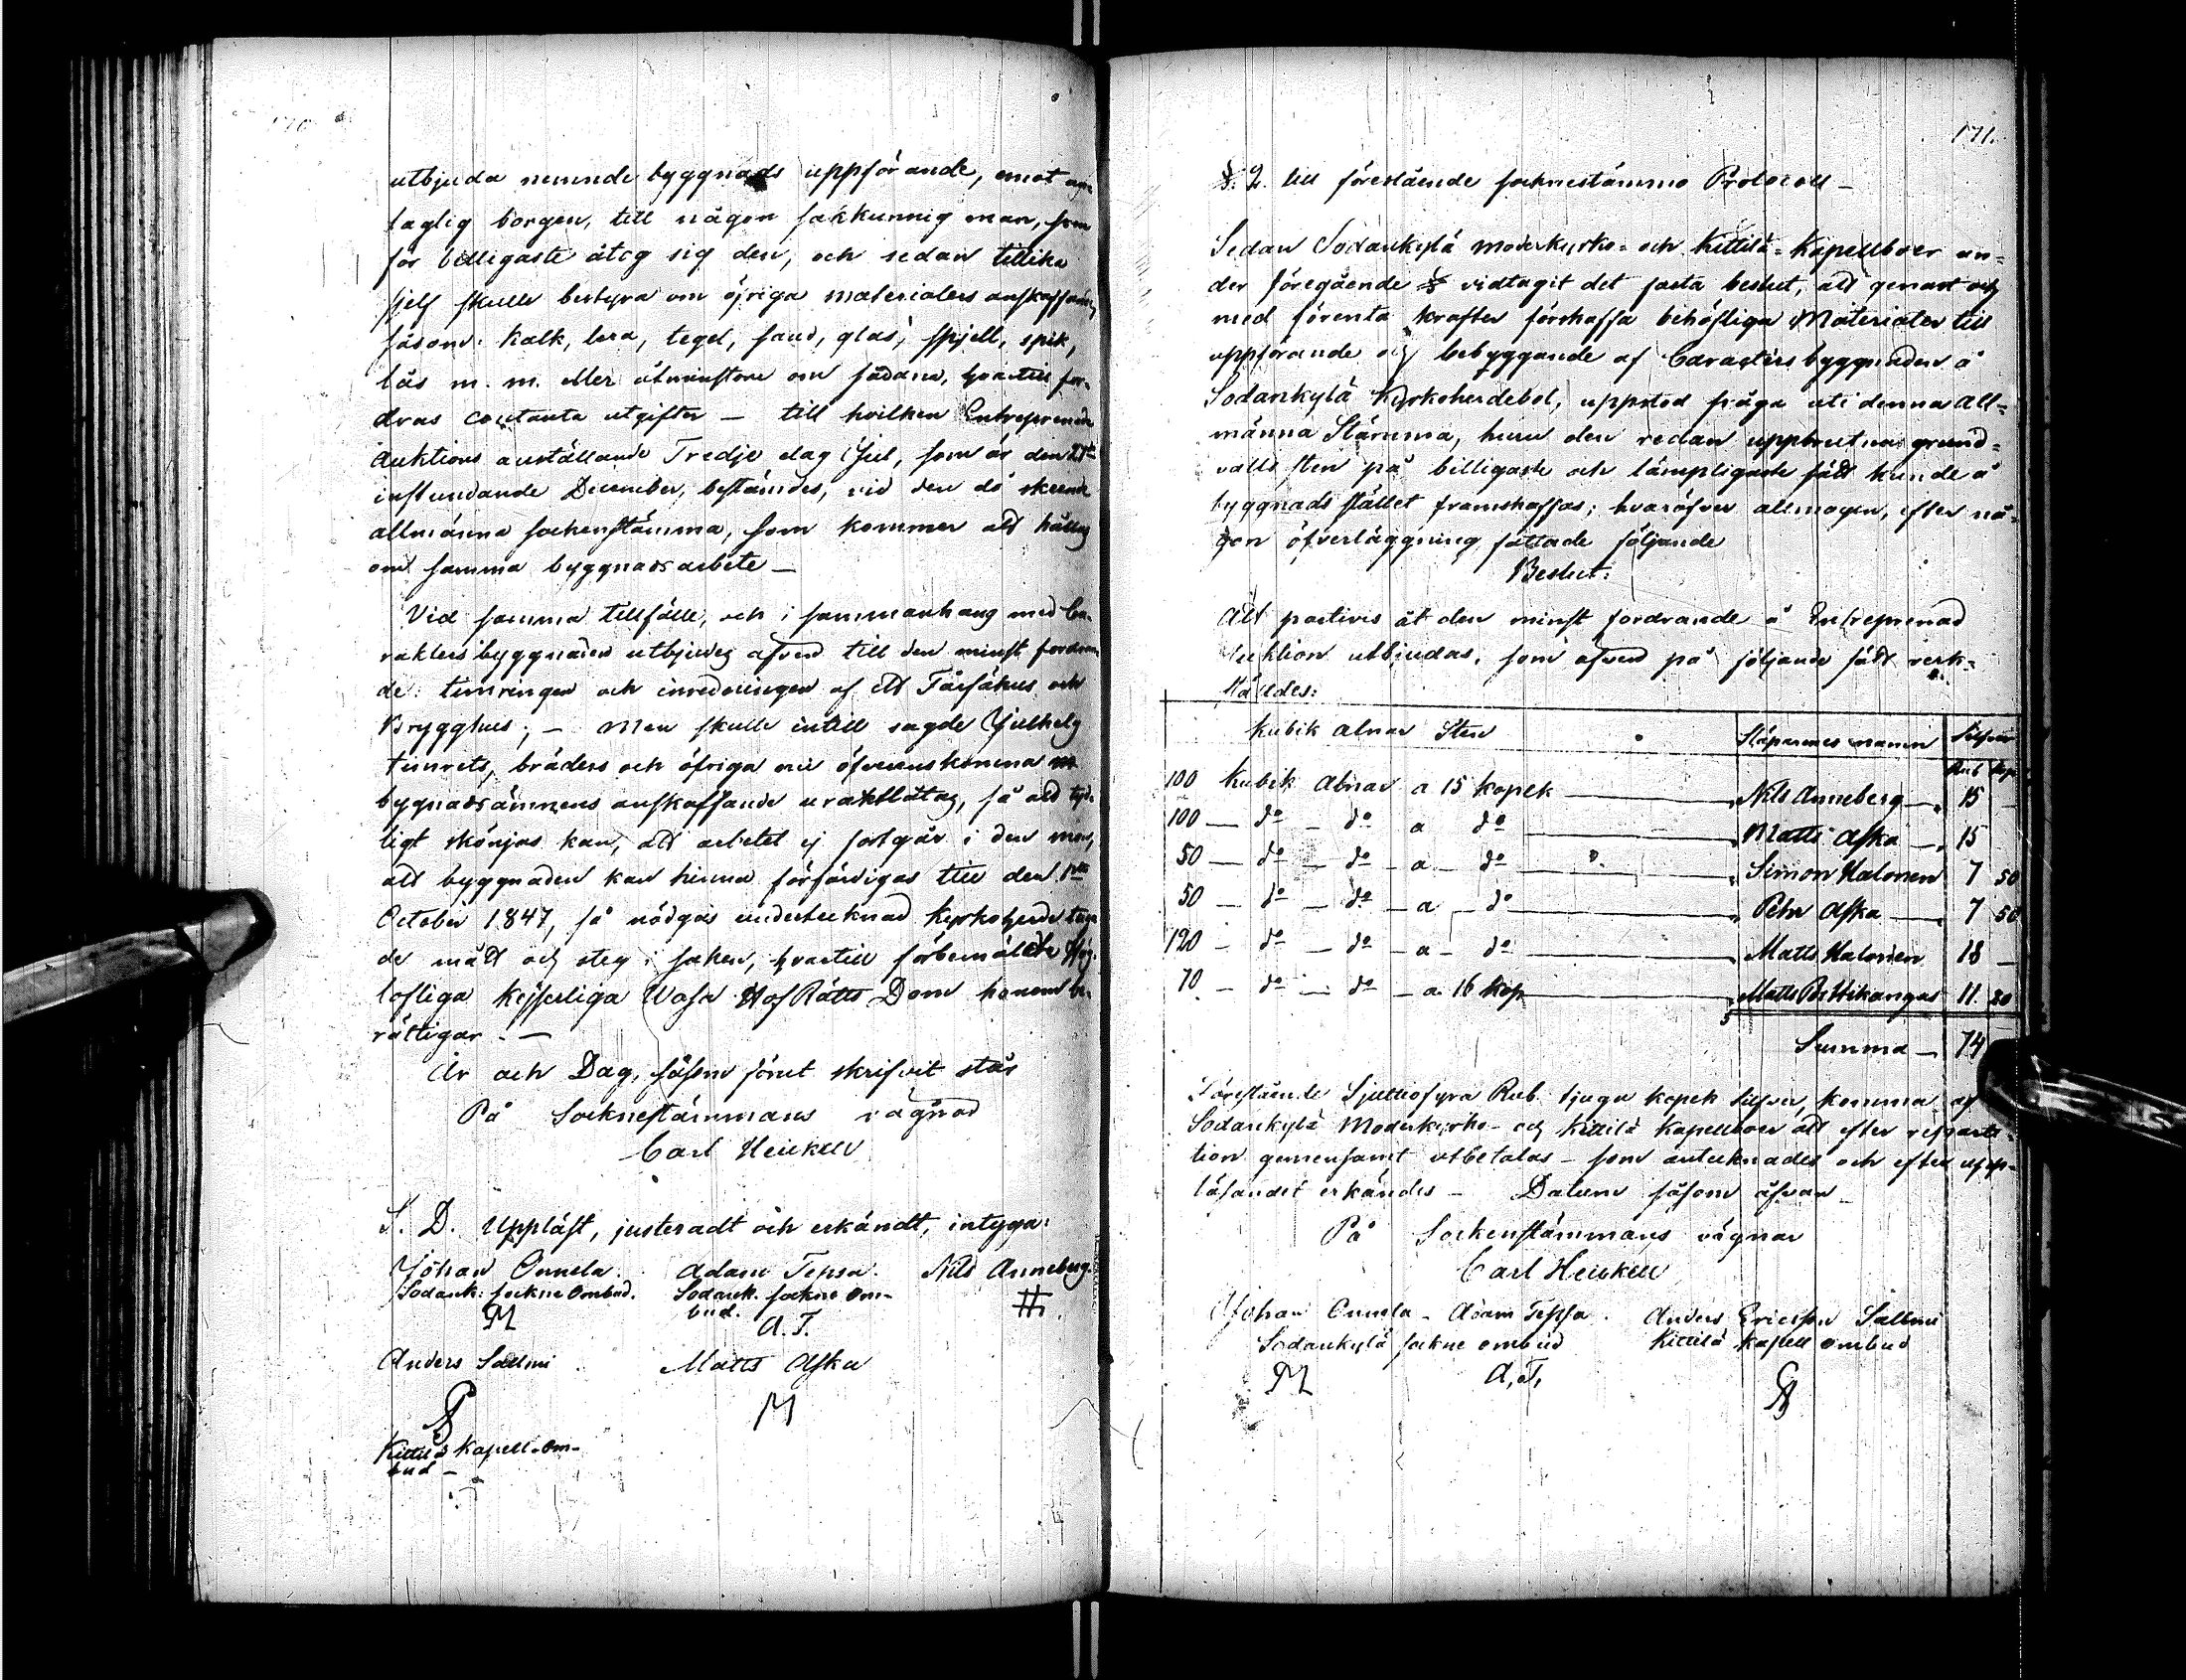 170
utbjuda nemnde byggnads uppförande, emot an-
taglig borgen, till någon sakkunnig man, som
för billigaste åtog sig den, och sedan tillika
sjelf skulle bestyra om öfriga materialers anskaffande,
såsom: kalk, lera, tegel, sand, glas, spjell, spik,
lås m. m. eller åtminstone om sådana, hvartill for-
dras contanta utgifter — till hvilken Entreprenad
Auktions anställande Tredje dag Jul, som är den 27de
instundande December, bestämdes, vid den då skeende
allmänna sockenstämma, som kommer att hållas
om samma byggnadsarbete —
Vid samma tillfälle, och i sammanhang med Ca-
rakters byggnaden utbjudes äfvend till den minst fordran-
de: timringen och inredningen af ett Fårfähus och
Brygghus; — Men skulle intill sagde Julhelg
timrets, bräders och öfriga nu öfverenskomna
bygnadsämnens anskaffande uraktlåtas, så att tyd-
ligt skönjas kan, att arbetet ej fortgår i den mon,
att byggnaden kan hinna förfärdigas till den 1sta
October 1847, så nödgas undertecknad Kyrkoherde taga
de mått och steg i saken, hvartill förbemälde Hög-
lofliga Kejserliga Wasa HofRätts Dom honom be-
rättigar. —
År och Dag, såsom förut skrifvit står
På Socknestämmans vägnar
Carl Heickell
S. D. Uppläst, justeradt och erkändt, intyga:
Johan Onnela. Adam Tepsa. Nils Anneberg.
Sodank: sockne Ombud. Sodank. sockne Om-
bud.
M A. T.
Anders Sallini Matts Aska
M
Kittilä Kapell-Om-
bud —
171.
§. 2. till förestående socknestämmo Protocoll —
Sedan Sodankylä moderkyrko- och Kittilä-Kapellboer un-
der föregående § vidtagit det fasta beslut, att genast och
med förenta krafter förskaffa behöfliga Materialer till
uppförande och bebyggande af Caractersbyggnaden å
Sodankylä Kyrkoherdebol, uppstod fråga uti denna all-
männa Stämma, huru den redan uppbrutna grund-
valls sten på billigaste och lämpligaste sätt kunde å
byggnads stället framskaffas; hvaröfver allmogen, efter nå-
gon öfverläggning fattade följande
Beslut:
Att partivis åt den minst fordrande å Entreprenad
Auktion utbjudas, som äfvend på följande sätt verk-
ställdes:
Kubik alnar Sten Släparenes namn Silfver
Rub Kop
100 Kubik Alnar a 15 kopek — Nils Anneberg — 15 —
100 — do — do a do — Matts Aska — 15
50 — do — do — a — do — Simon Halonen 7 50
50 — do — do — a — do — Pehr Aska — 7 50
120 — do — do — a — do — Matts Halonen 18 —
70 — do — do — a 16 kop — Matts Pettikangas 11. 20
Summa — 74
Förestående Sjuttiofyra Rub. tjugu kopek Silfver, komma af
Sodankylä Moderkyrko- och Kittilä Kapellboer att efter reparti-
tion gemensamt utbetalas — som antecknades och efter upp-
läsandet erkändes — Datum såsom äfvan
På Sockenstämmans vägnar
Carl Heickell
Johan Onnela — Adam Tepsa. Anders Ericsson Sallini
Sodankylä sockne ombud Kittilä Kapell ombud
M A. T.